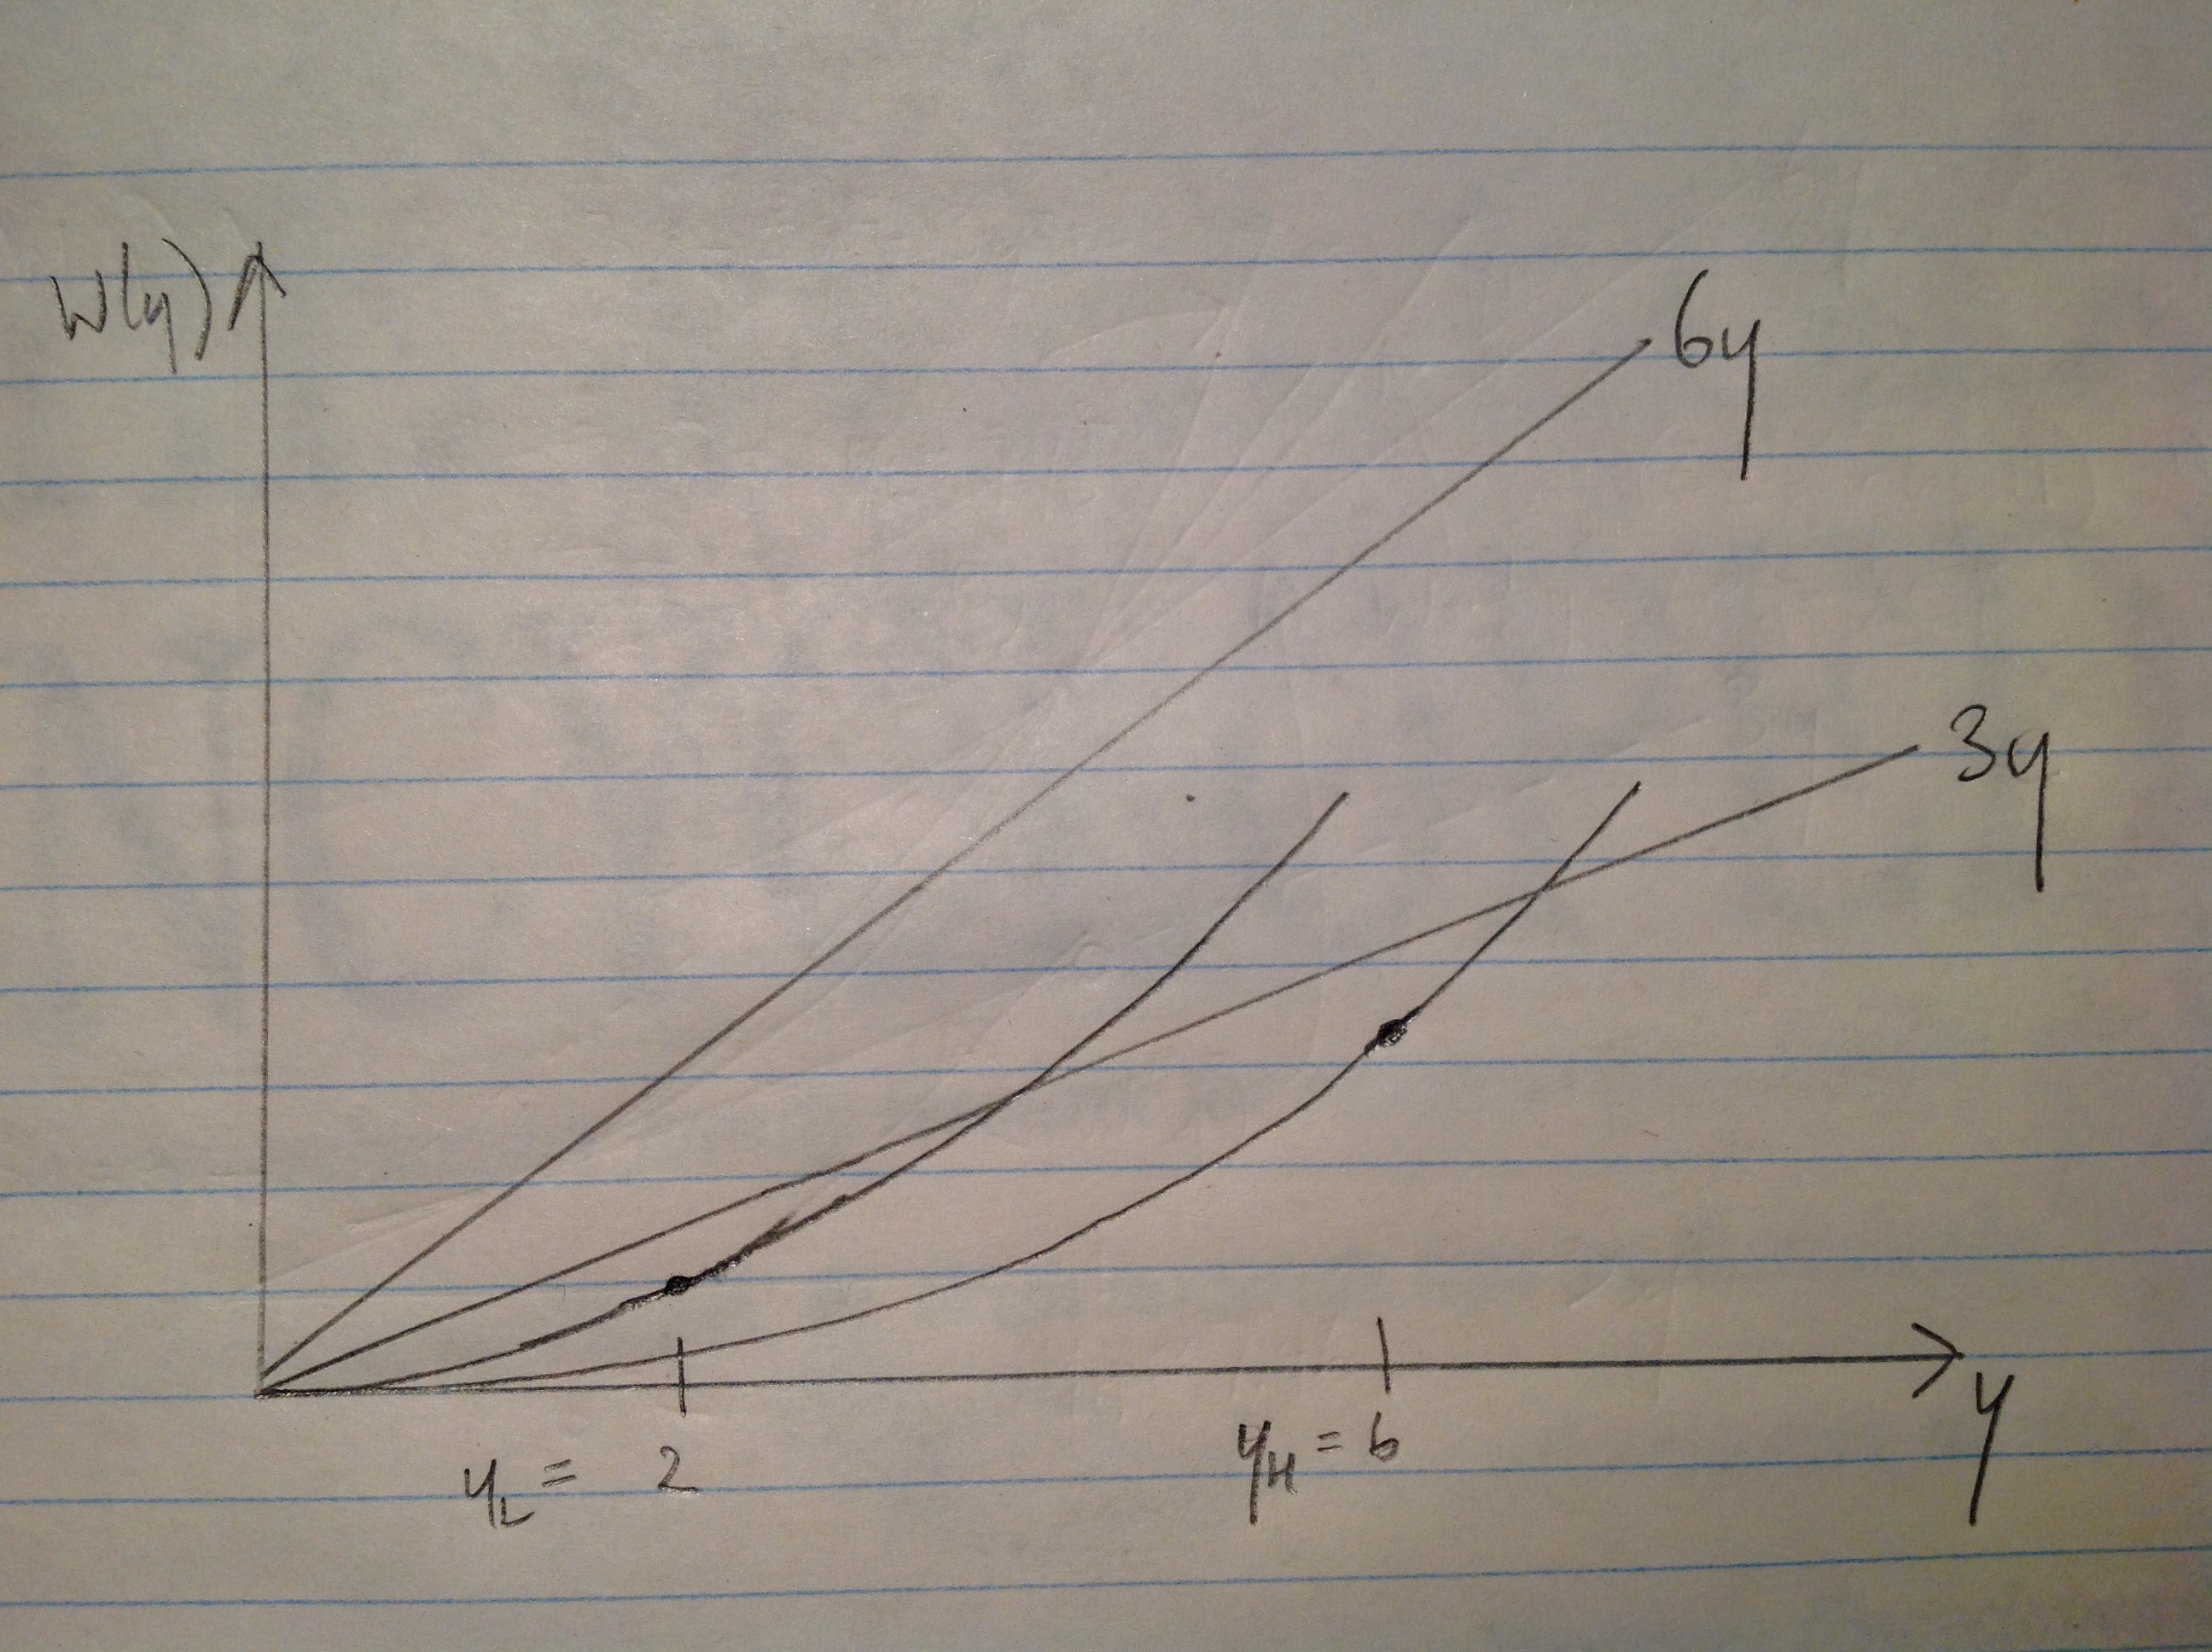 W(y)
6y
3y
y
y_L = 2
y_H = 6